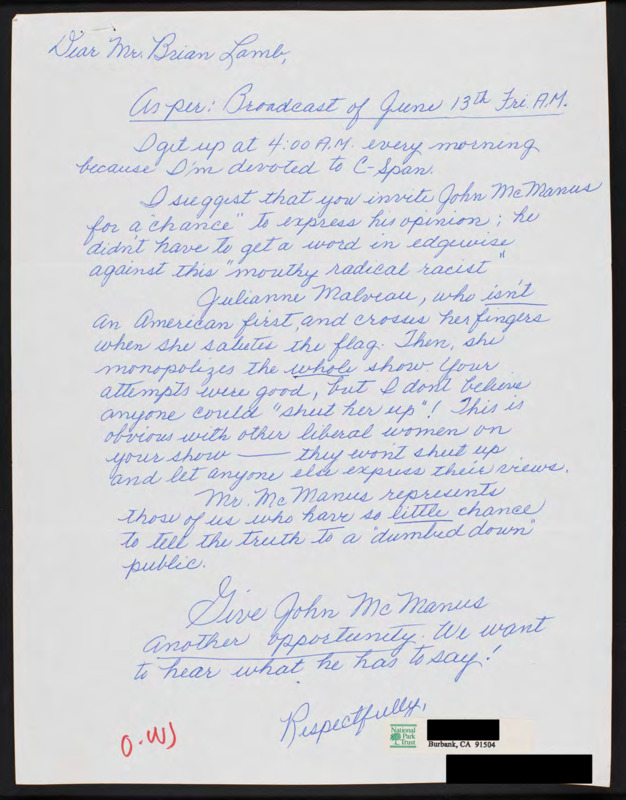 Dear Mr. Brian Lamb,
As per: Broadcast of June 13th Fri. A.M.
I get up at 4:00 A.M. every morning
because I'm devoted to C-Span.
I suggest that you invite John McManus
for a "chance" to express his opinion; he
didn't have to get a word in edgewise
against this "mouthy radical racist"
Julianne Malveau, who isn't
an American first, and crosses her fingers
when she salutes the flag. Then, she
monopolizes the whole show. Your
attempts were good, but I don't believe
anyone could "shut her up"! This is
obvious with other liberal women on
your show — they won't shut up
and let anyone else express their views.
Mr. McManus represents
those of us who have so little chance
to tell the truth to a "dumbed down"
public.
Give John McManus
another opportunity. We want
to hear what he has to say!
Respectfully,
National
Park
Trust
Burbank, CA 91504